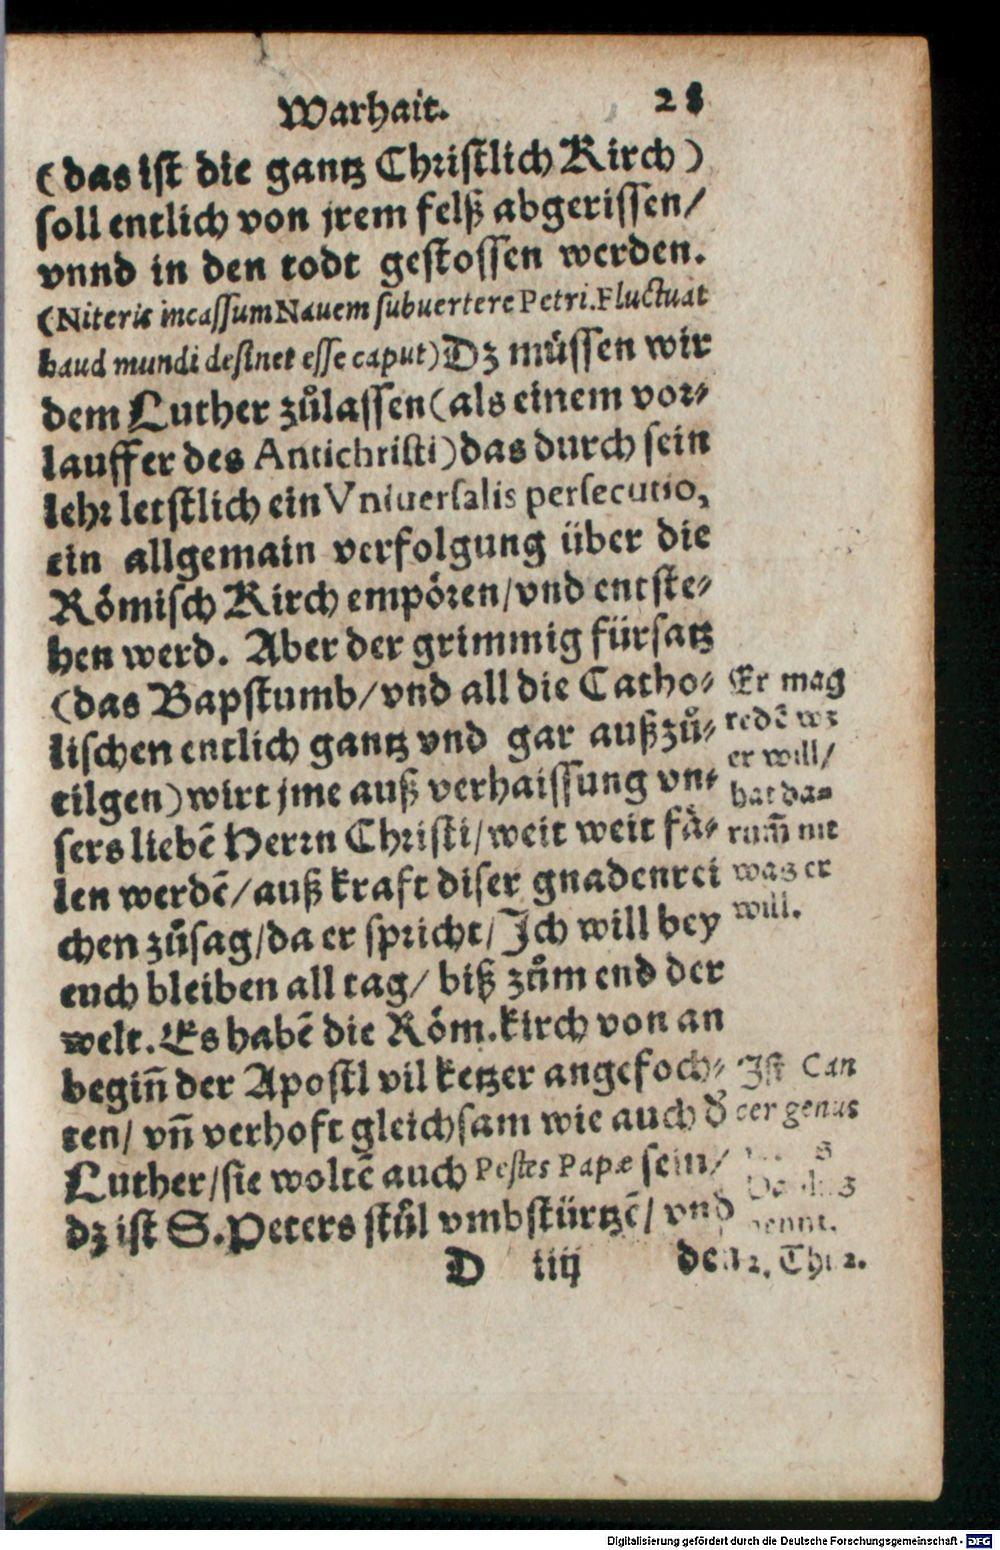 Warhait. 28
(das ist die gantz Christlich Kirch)
soll entlich von jrem felß abgerissen/
vnnd in den todt gestossen werden.
(Niteris incassum Nauem subuertere Petri. Fluctuat
haud mundi desinet esse caput) Dz müssen wir
dem Luther zůlassen (als einem vor-
lauffer des Antichristi) das durch sein
lehr letstlich ein Vniuersalis persecutio,
ein allgemain verfolgung über die
Römisch Kirch empören/vnd entste-
hen werd. Aber der grimmig fürsatz
(das Bapstumb/vnd all die Catho-
lischen entlich gantz vnd gar außzů-
tilgen) wirt jme auß verhaissung vn-
sers liebẽ Herrn Christi/weit weit fä-
len werdẽ/auß kraft diser gnadenrei
chen zůsag/da er spricht/Ich will bey
euch bleiben all tag/ biß zům end der
welt. Es habẽ die Röm.kirch von an
begiñ der Apostl vil ketzer angefoch-
ten/ vñ verhoft gleichsam wie auch d̕
Luther/sie woltẽ auch Pestes Papæ sein/
dz ist S. Peters stůl vmbstürtzẽ/ vnd
D iiij den
Er mag
redẽ wz
er will/
hat da=
rum̃ nit
was er
will.
Ist Can
cer genus
nennt.
2. Thi 2.
Digitalisierung gefördert durch die Deutsche Forschungsgemeinschaft - DFG